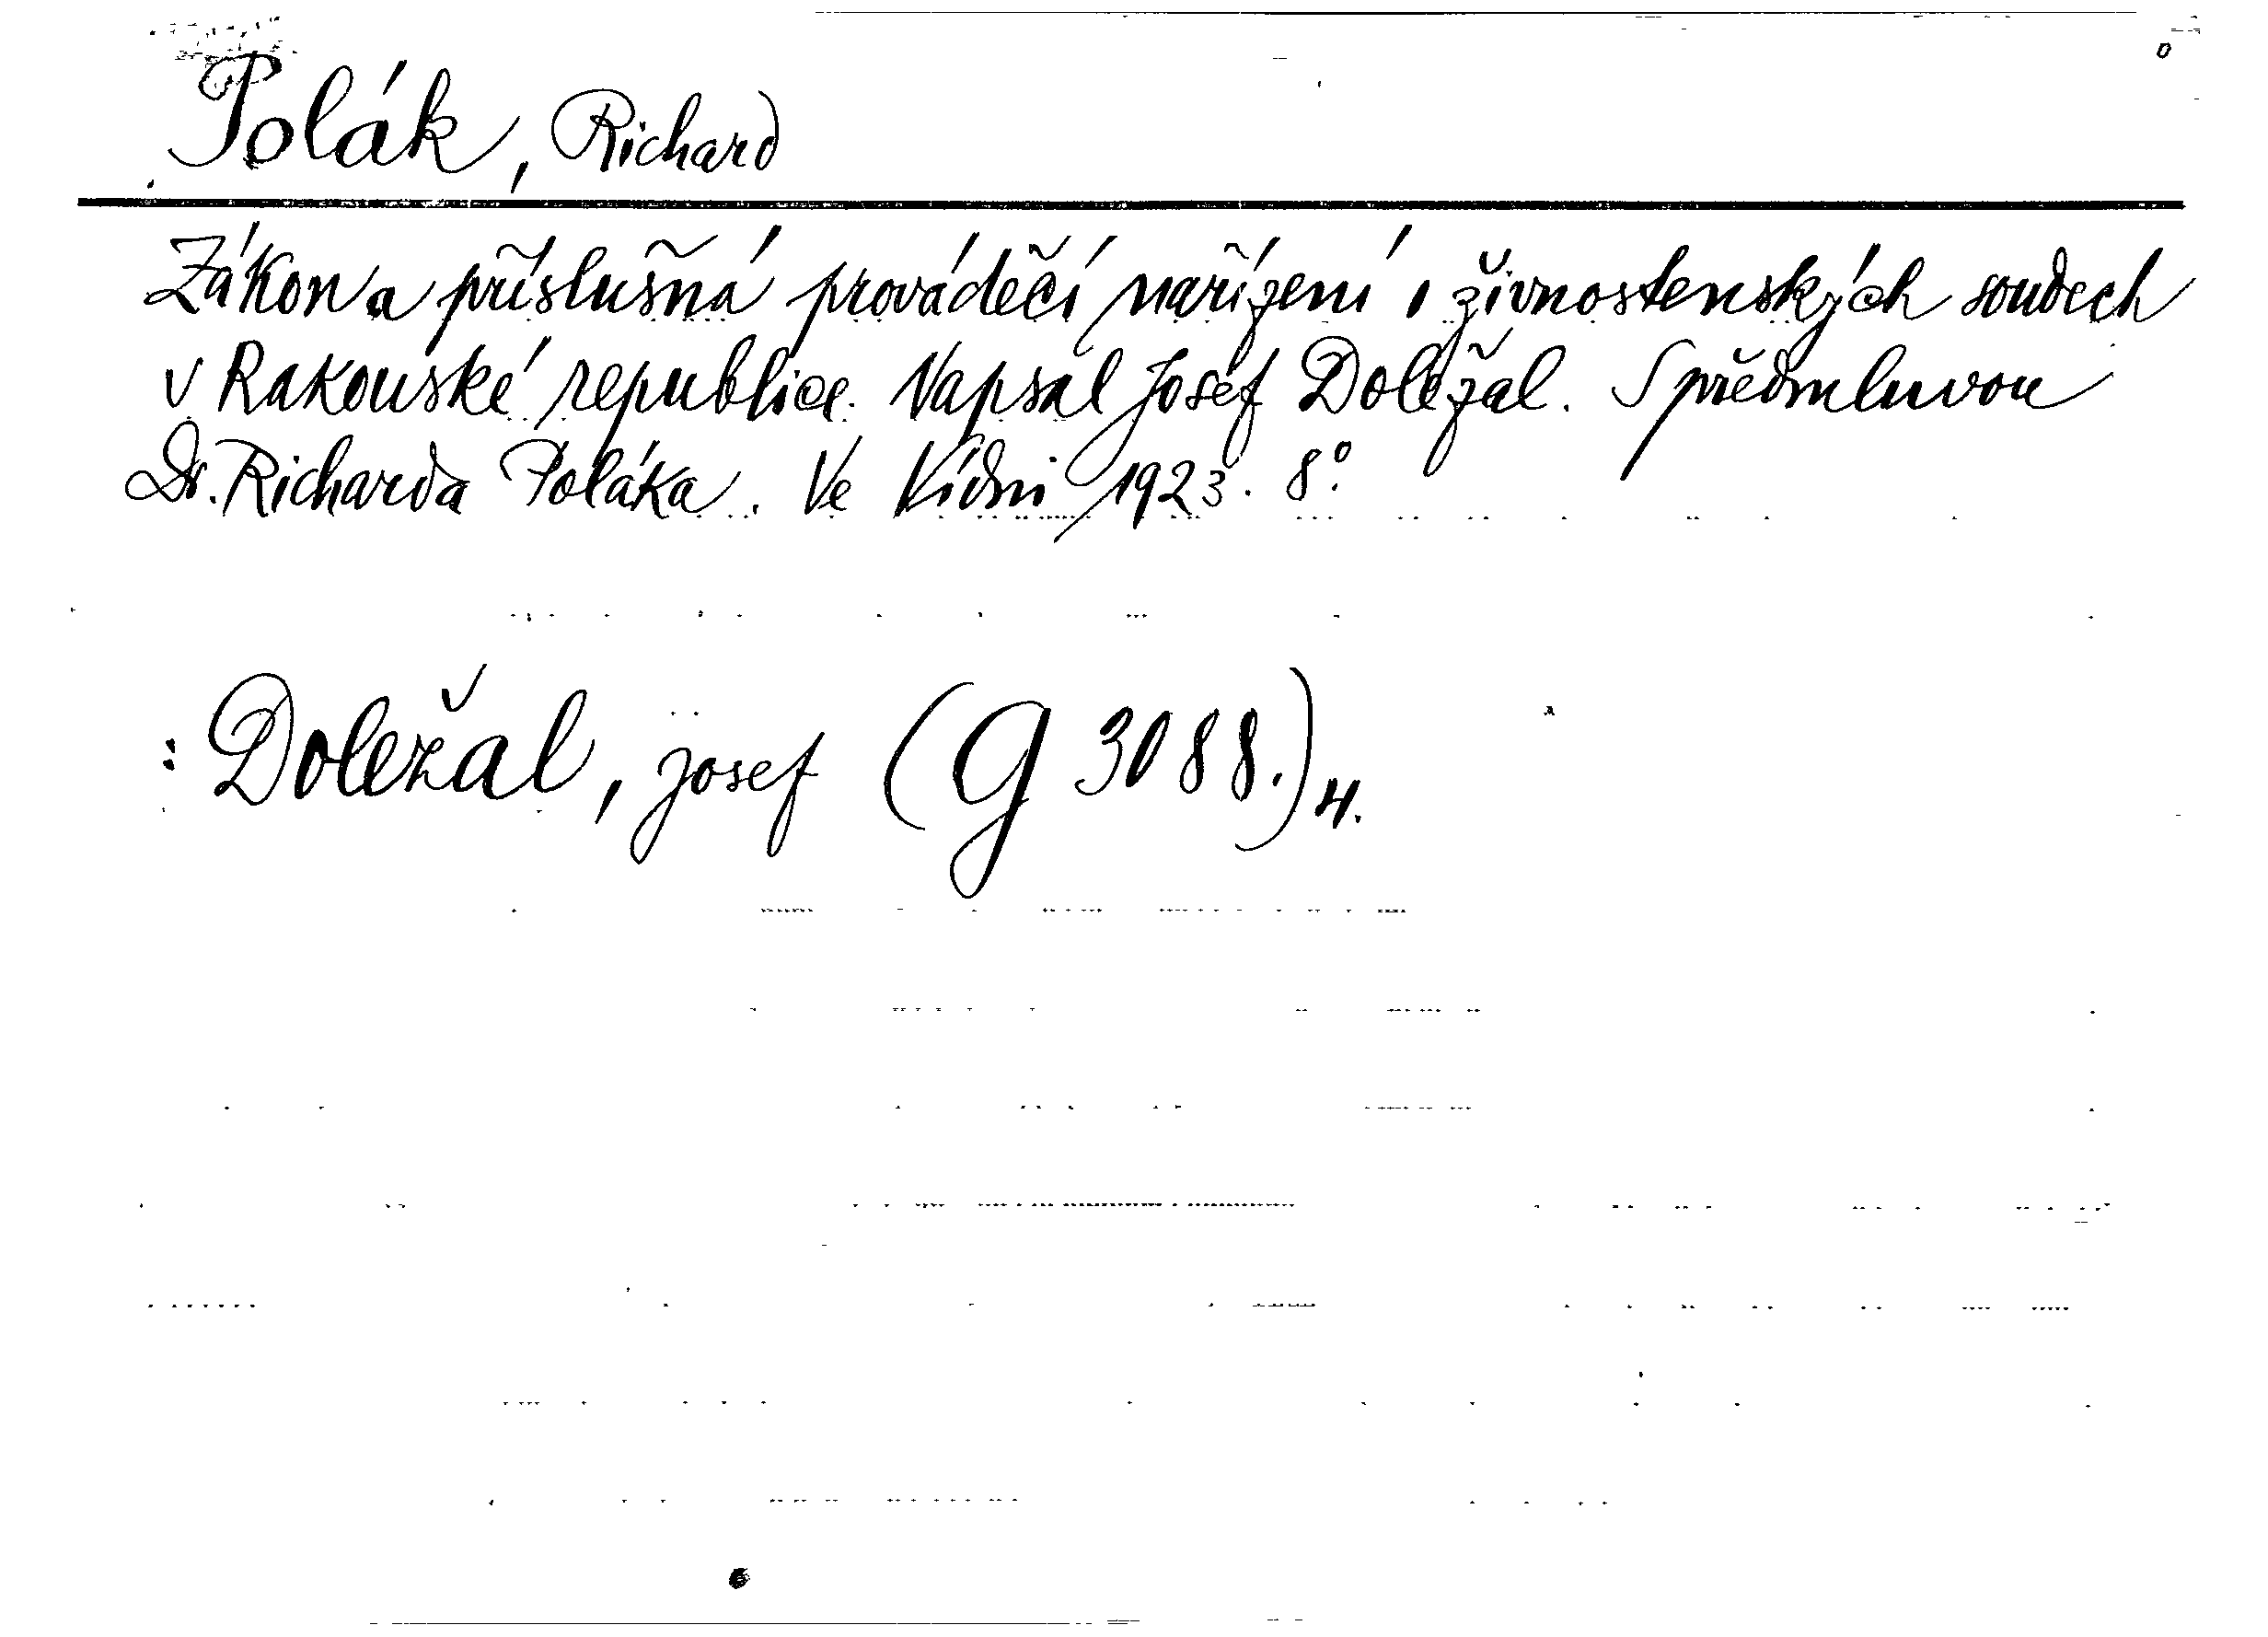 Polák, Richard
Zákon a příslušná prováděčí nařízení o živnostenských soudech
v Rakouské republice. Napsal Josef Doležal. S předmluvou
Dr. Richarda Poláka. Ve Vídni 1923. 8°.
: Doležal, Josef (G 3088.) H.